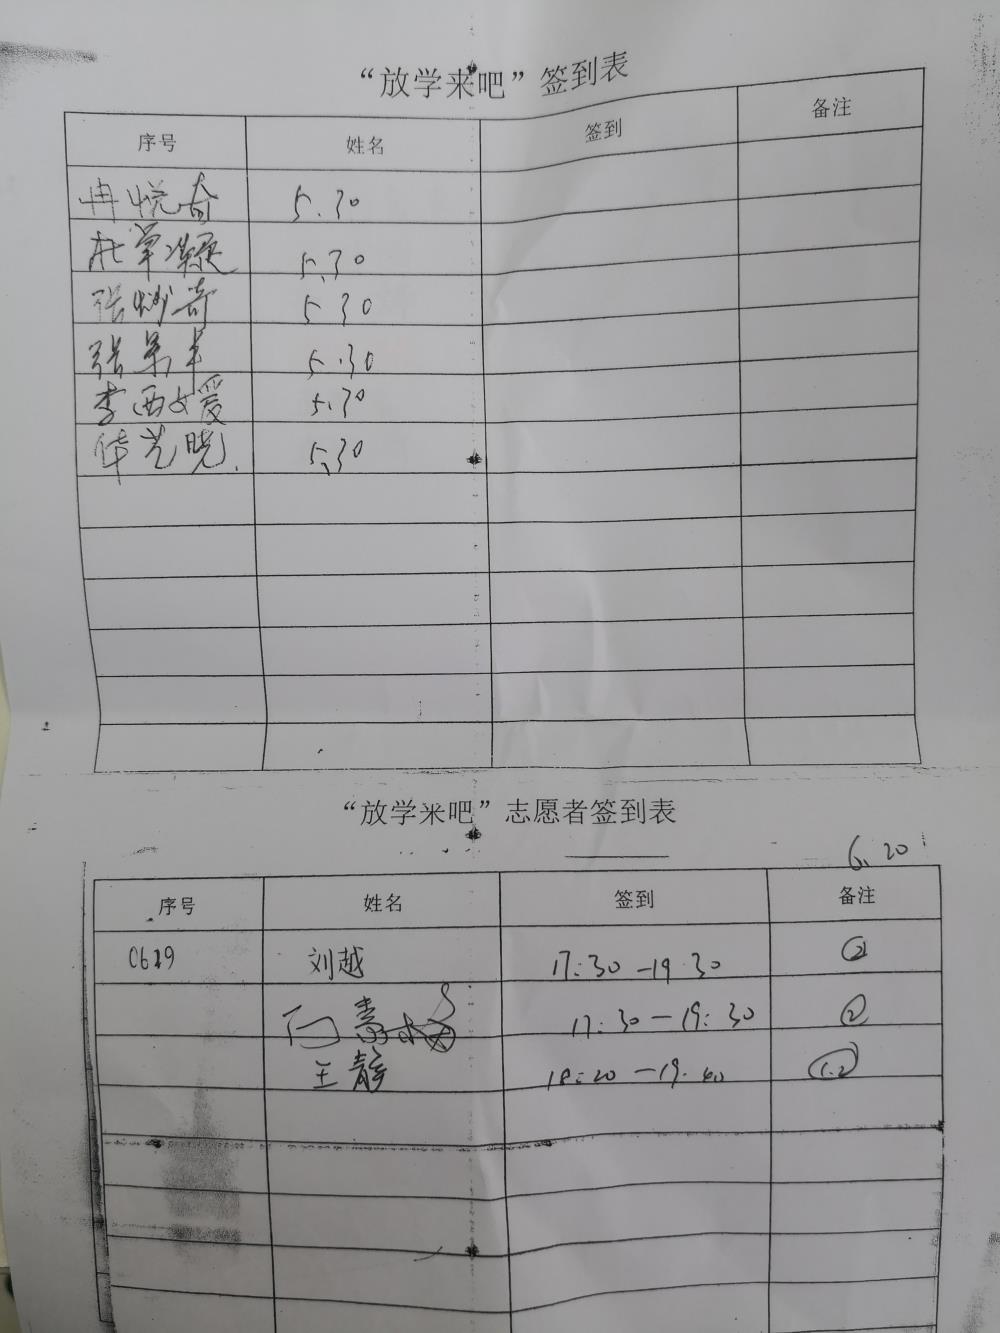 “放学来吧”签到表
序号 姓名 签到 备注
冉悦奇 5.30
5.30
张妙奇 5.30
张景丰 5.30
李西媛 5.30
华艺晓 5.30
“放学来吧”志愿者签到表
6.20
序号 姓名 签到 备注
0619 刘越 17:30-19:30 ②
17:30-19:30 ②
王静 18:20-19:40 1.2